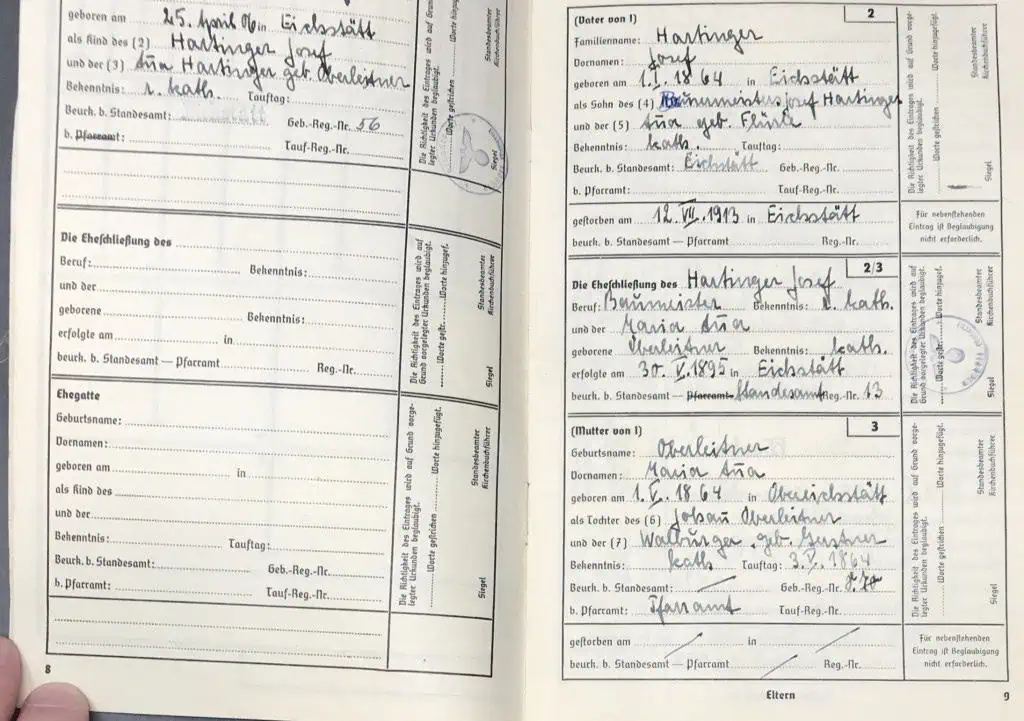 geboren am 25. April 06 in Eichstätt
als Kind des (2) Hartinger Josef
und der (3) Ana Hartinger geb. Oberleitner
Bekenntnis: r. kath. Tauftag:
Beurk. b. Standesamt: Geb.-Reg.-Nr. 56
b. Pfarramt: Tauf-Reg.-Nr.
Die Richtigkeit des Eintrages wird auf Grund vorge-
legter Urkunden beglaubigt.
Worte gestrichen Worte hinzugefügt.
Standesbeamter
Kirchenbuchführer
Siegel
Die Eheschließung des
Beruf: Bekenntnis:
und der
geborene Bekenntnis:
erfolgte am in
beurk. b. Standesamt — Pfarramt Reg.-Nr.
Die Richtigkeit des Eintrages wird auf
Grund vorgelegter Urkunden beglaubigt.
Worte gestr. Worte hinzugef.
Standesbeamter
Kirchenbuchführer
Siegel
Ehegatte
Geburtsname:
Vornamen:
geboren am in
als Kind des
und der
Bekenntnis: Tauftag:
Beurk. b. Standesamt: Geb.-Reg.-Nr.
b. Pfarramt: Tauf-Reg.-Nr.
Die Richtigkeit des Eintrages wird auf Grund vorge-
legter Urkunden beglaubigt.
Worte gestrichen Worte hinzugefügt.
Standesbeamter
Kirchenbuchführer
Siegel
8
(Vater von 1) 2
Familienname: Hartinger
Vornamen: Josef
geboren am 1.I.1864 in Eichstätt
als Sohn des (4) Baumeisters Josef Hartinger
und der (5) Ana geb.
Bekenntnis: kath. Tauftag:
Beurk. b. Standesamt: Eichstätt Geb.-Reg.-Nr.
b. Pfarramt: Tauf-Reg.-Nr.
Die Richtigkeit des Eintrages wird auf Grund vorge-
legter Urkunden beglaubigt.
Worte gestrichen Worte hinzugefügt.
Standesbeamter
Kirchenbuchführer
Siegel
gestorben am 12.VII.1913 in Eichstätt
beurk. b. Standesamt — Pfarramt Reg.-Nr.
Für nebenstehenden
Eintrag ist Beglaubigung
nicht erforderlich.
2/3
Die Eheschließung des Hartinger Josef
Beruf: Baumeister Bekenntnis: r. kath.
und der Maria Ana
geborene Oberleitner Bekenntnis: kath.
erfolgte am 30.V.1895 in Eichstätt
beurk. b. Standesamt — Pfarramt Standesamt Reg.-Nr. 13
Die Richtigkeit des Eintrages wird auf
Grund vorgelegter Urkunden beglaubigt.
Worte gestr. Worte hinzugef.
Standesbeamter
Kirchenbuchführer
Siegel
(Mutter von 1) 3
Geburtsname: Oberleitner
Vornamen: Maria Ana
geboren am 1.V.1864 in Obereichstätt
als Tochter des (6) Johan Oberleitner
und der (7) Walburger, geb.
Bekenntnis: kath Tauftag: 3.V.1864
Beurk. b. Standesamt: Geb.-Reg.-Nr.
b. Pfarramt: Pfarramt Tauf-Reg.-Nr.
Die Richtigkeit des Eintrages wird auf Grund vorge-
legter Urkunden beglaubigt.
Worte gestrichen Worte hinzugefügt.
Standesbeamter
Kirchenbuchführer
Siegel
gestorben am in
beurk. b. Standesamt — Pfarramt Reg.-Nr.
Für nebenstehenden
Eintrag ist Beglaubigung
nicht erforderlich.
Eltern 9